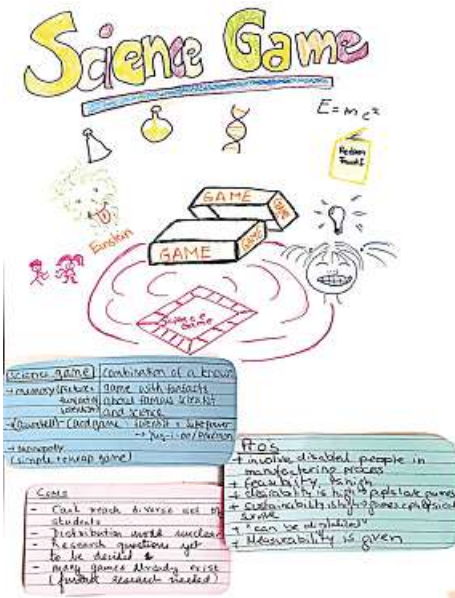 Science Game
E=mc²
Einstein
GAME
GAME
GAME
GAME
Science
Game
Science game
combination of a known
game with funfacts
about famous scientist
and science
→ memory (picture +
scientist)
(Quartett) - Card game: scientist + superpower
→ Yu-gi-oh/Pokemon
→ monopoly
(simple + cheap game)
Pro's
+ involve disabled people in
manufacturing process
+ feasibility is high
+ desirability is high → ppl love games
+ sustainability is high →
+ "can be digitalized"
+ Measurability is given
Cons
- Can't reach diverse set of
students
- Distribution model unclear
- Research questions yet
to be decided
- many games already exist
(further research needed)